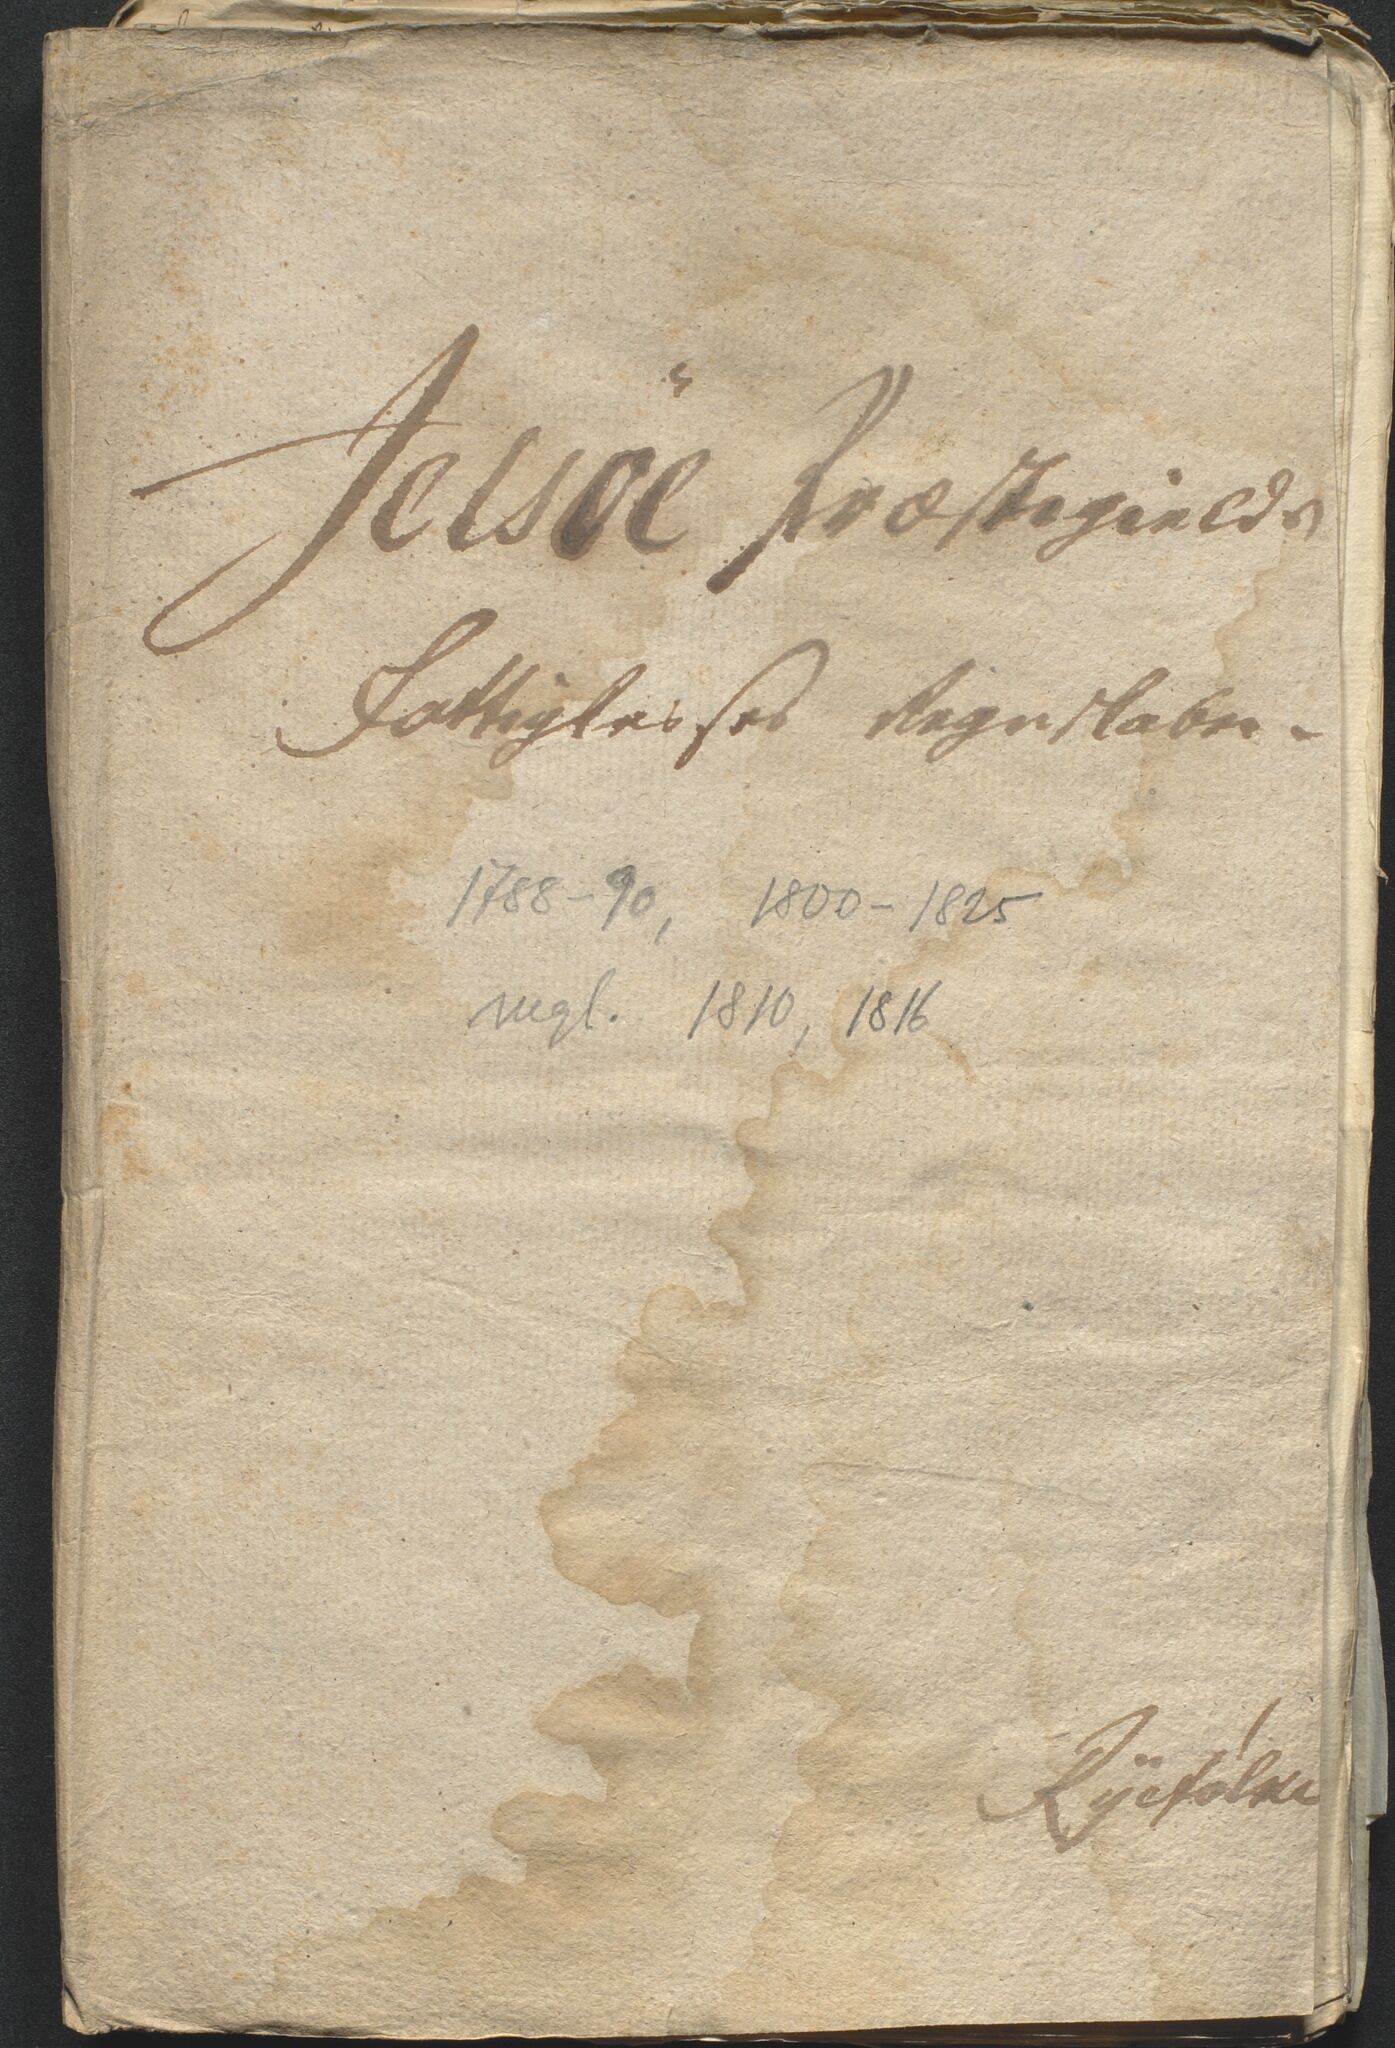 Jelsöe Præstegields
Fattigkasses Regnskaber.
1788-90, 1800-1825
mgl. 1810, 1816
Ryefylke